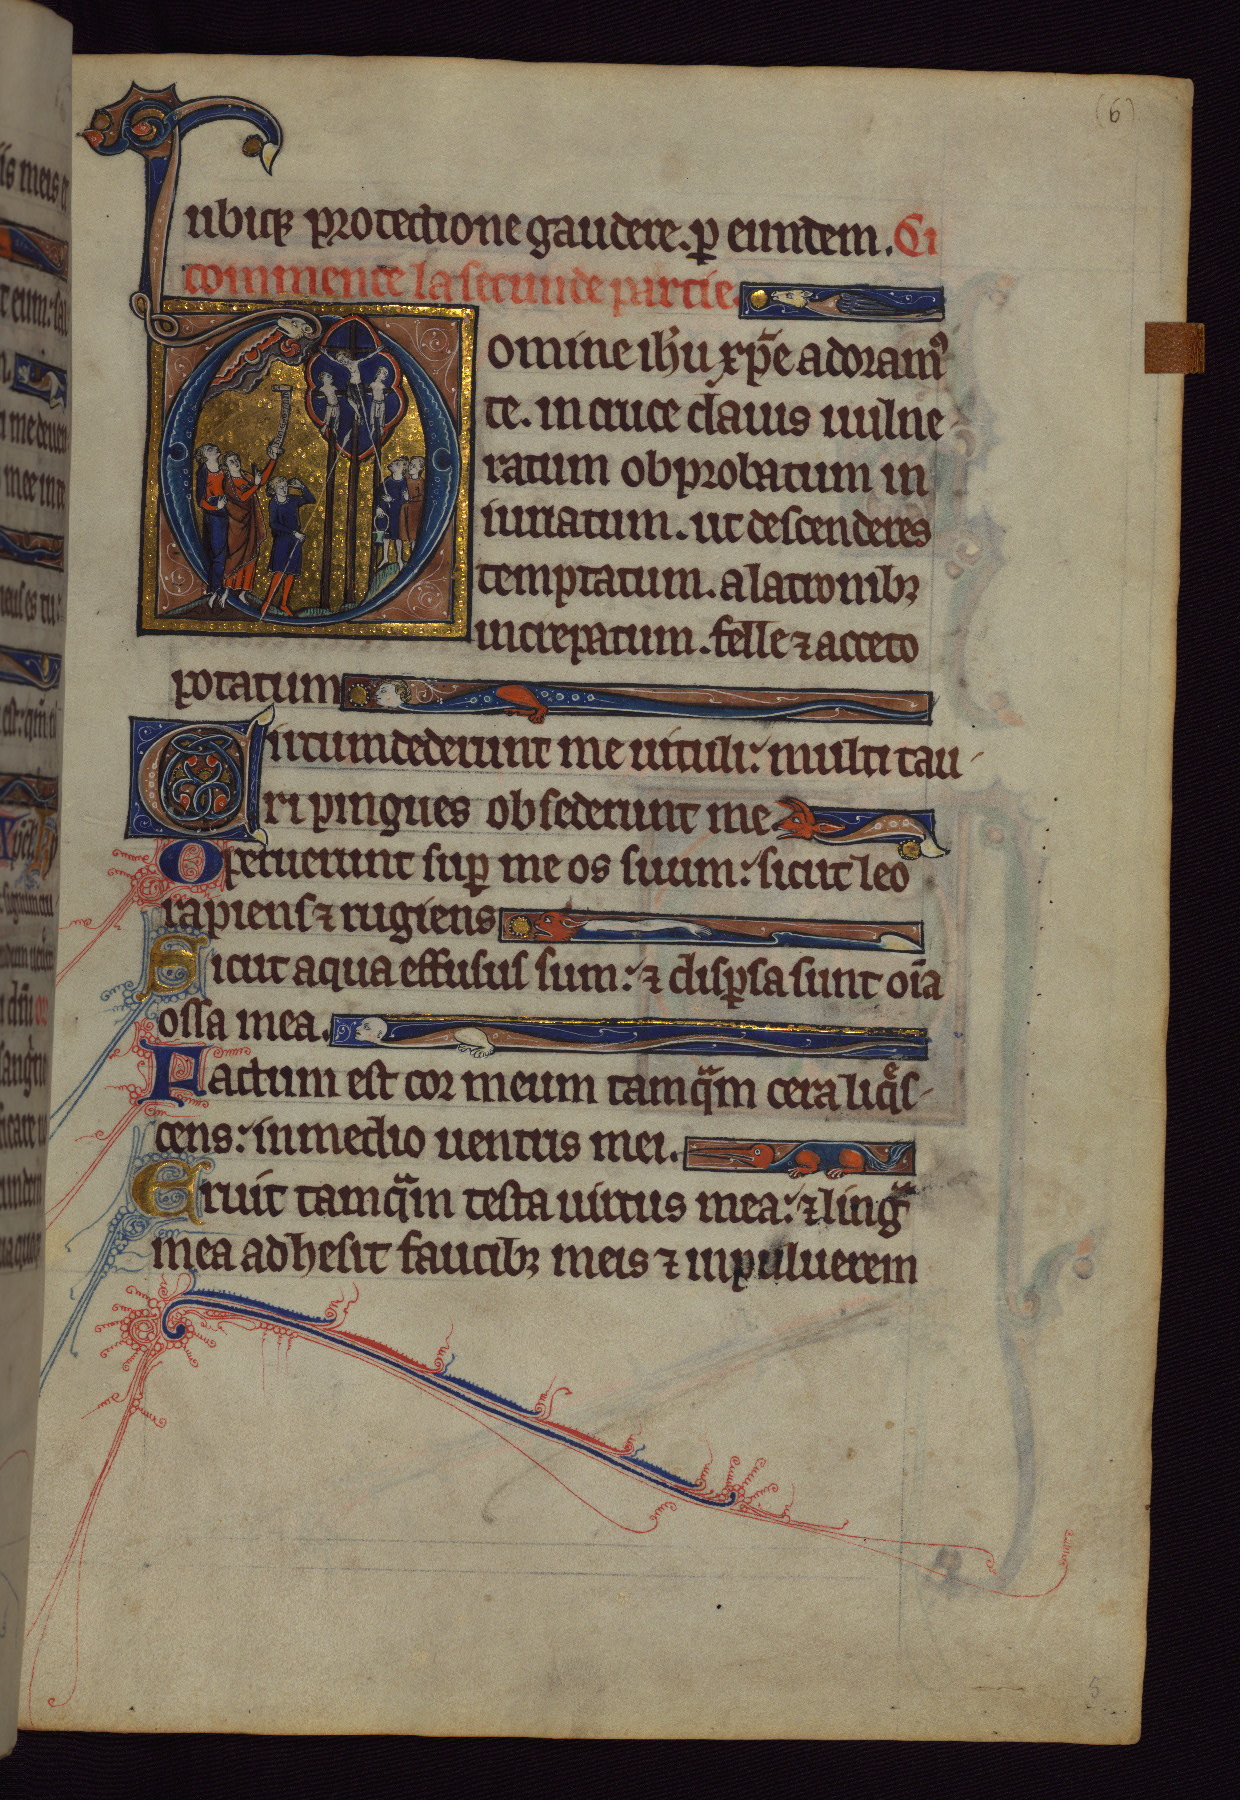 (6)
ubiqꝫ protectione gaudere. ꝑ eundem. Ci
commence la secunde partie.
Domine ihu xp̄e adoramꝰ
te. in cruce clauis uulne
ratum obprobatum in
iuriatum. ut descenderes
temptatum. a latronibꝫ
increpatum. felle ⁊ aceto
potatum
Circumdederunt me uituli: multi tau
ri pingues obsederunt me
Operuerunt suꝑ me os suum: sicut leo
rapiens ⁊ rugiens
Sicut aqua effusus sum: ⁊ dispsa sunt oīa
ossa mea.
Factum est cor meum tamqᵃm cera liqͤs
cens: in medio uentris mei.
Aruit tamqᵃm testa uirtus mea: ⁊ lingᵃ
mea adhesit faucibꝫ meis ⁊ in puluerem
5